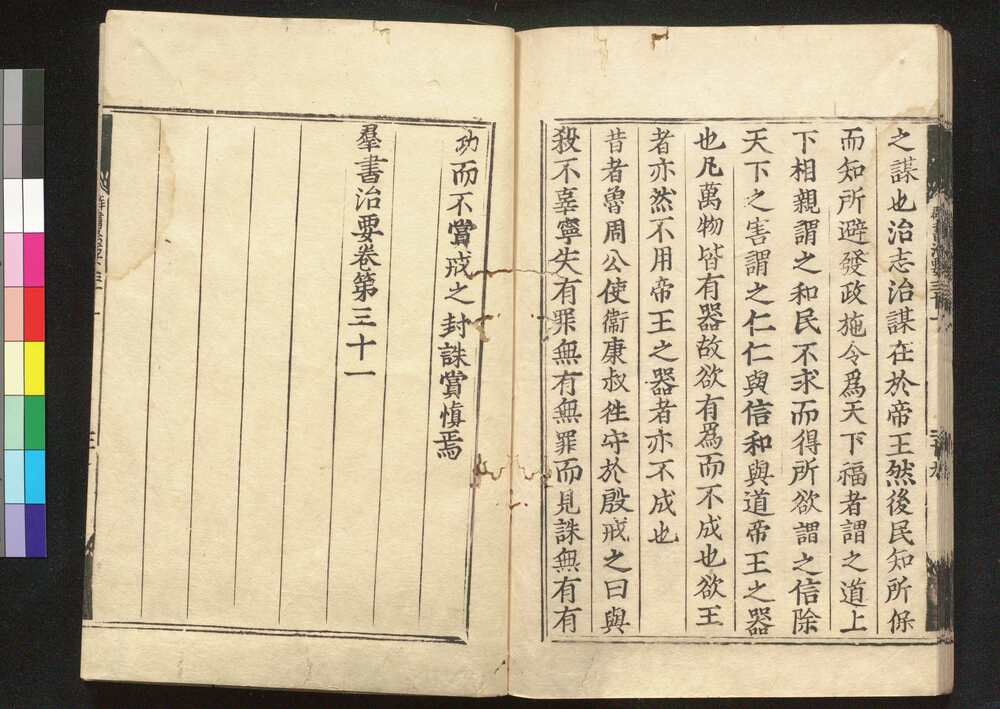 之謀也治志治謀在於帝王然後民知所保
而知所避發政施令爲天下福者謂之道上
下相親謂之和民不求而得所欲謂之信除
天下之害謂之仁仁與信和與道帝王之器
也凡萬物皆有器故欲有爲而不成也欲王
者亦然不用帝王之器者亦不成也
昔者魯周公使衞康叔徃守於殷戒之曰與
殺不辜寧失有罪無有無罪而見誅無有有
功而不賞戒之封誅賞愼焉
羣書治要卷第三十一